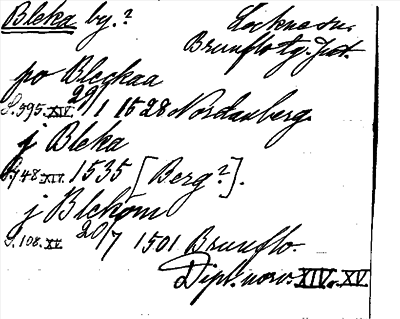 Bleka by.? Locknesn.
Brunflo tg. Jtl.
po Bleckaa
S. 395. XIV. 29/1 1528 Nordanberg.
j Bleka
S. 748. XIV. 1535 [Berg?].
j Blekom
S. 108. XV 20/7 1501 Brunflo.
Dipl. norv. XIV. XV